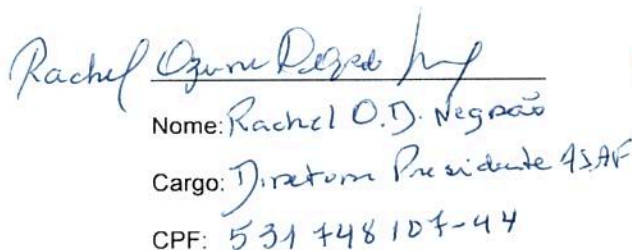 Rachel
Nome: Rachel O.D. Negrão
Cargo: Diretora Presidente ASAF
CPF: 531 748 107-44